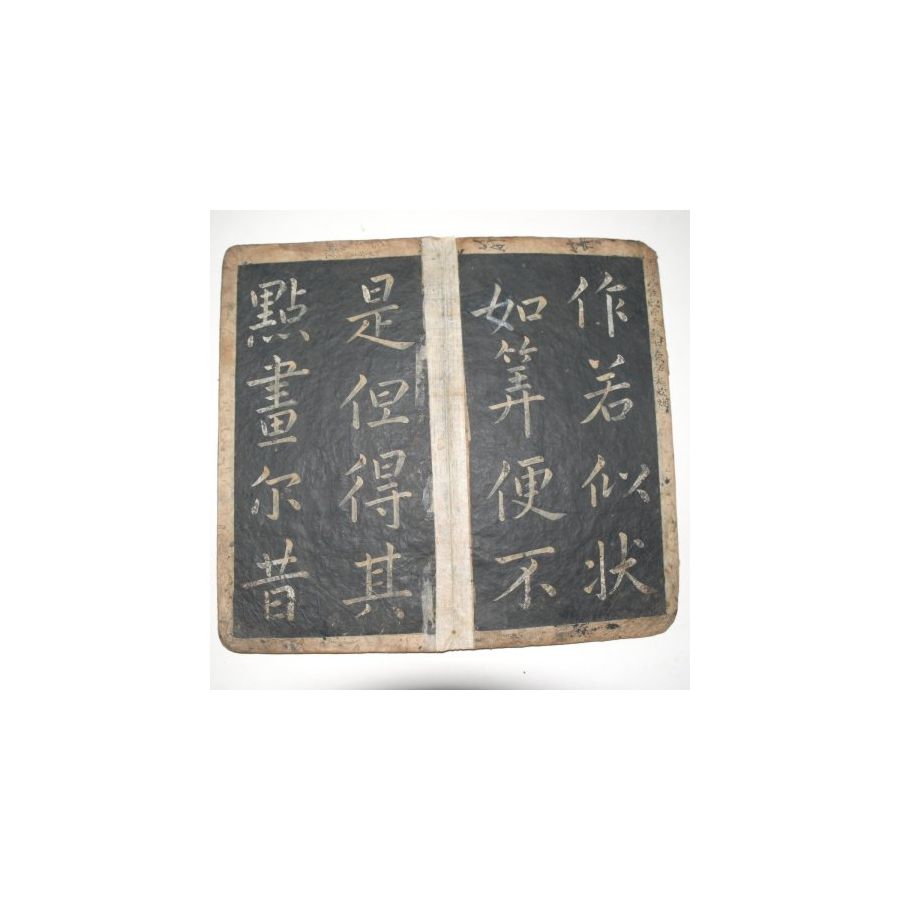 作若似状
如筭便不
是但得其
點畫尔昔